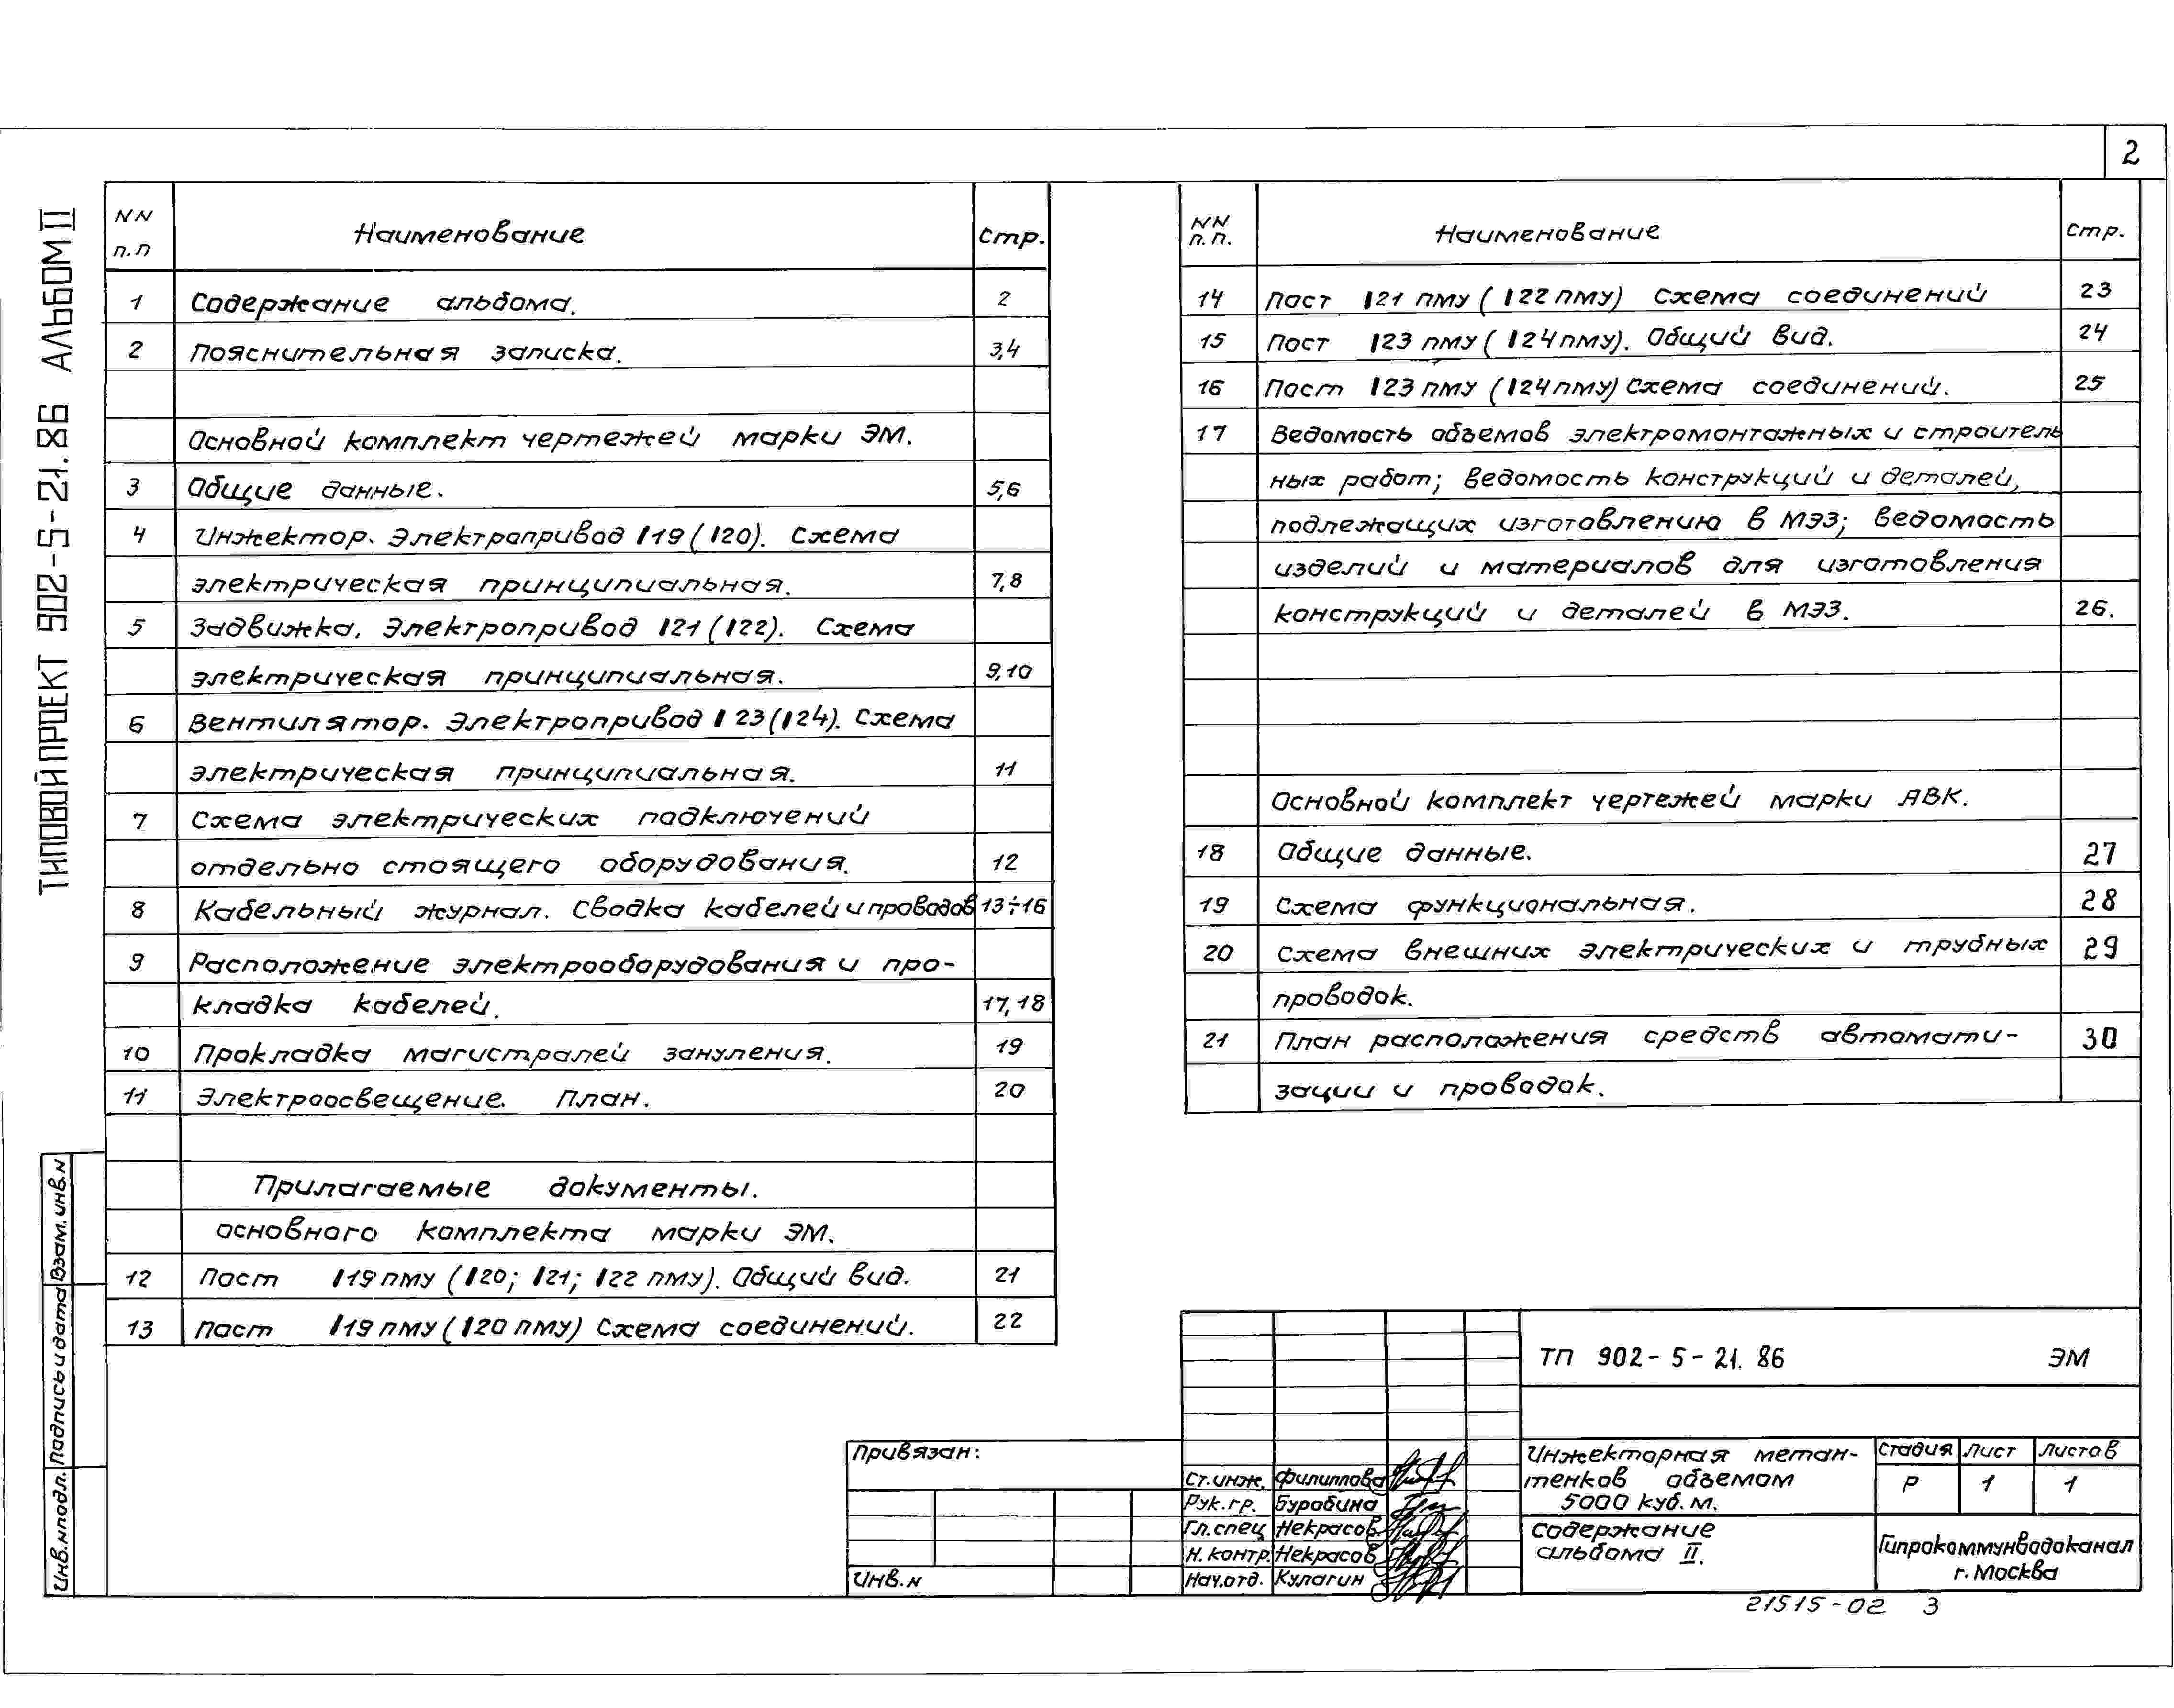 2
ТИПОВОЙ ПРОЕКТ 902-5-21.86 АЛЬБОМ II
NN п.п Наименование стр.
1 Содержание альбома. 2
2 Пояснительная записка. 3,4
Основной комплект чертежей марки ЭМ.
3 Общие данные. 5,6
4 Инжектор. Электропривод 119 (120). Схема
электрическая принципиальная. 7,8
5 Задвижка. Электропривод 121 (122). Схема
электрическая принципиальная. 9,10
6 Вентилятор. Электропривод 123 (124). Схема
электрическая принципиальная. 11
7 Схема электрических подключений
отдельно стоящего оборудования. 12
8 Кабельный журнал. Сводка кабелей и проводов 13÷16
9 Расположение электрооборудования и про-
кладка кабелей. 17,18
10 Прокладка магистралей зануления. 19
11 Электроосвещение. План. 20
Прилагаемые документы.
основного комплекта марки ЭМ.
12 Пост 119 пму (120; 121; 122 пму). Общий вид. 21
13 Пост 119 пму (120 пму) Схема соединений. 22
NN п.п. Наименование стр.
14 Пост 121 пму (122 пму) Схема соединений 23
15 Пост 123 пму (124 пму). Общий вид. 24
16 Пост 123 пму (124 пму) Схема соединений. 25
17 Ведомость объемов электромонтажных и строитель
ных работ; ведомость конструкций и деталей,
подлежащих изготовлению в МЭЗ; ведомость
изделий и материалов для изготовления
конструкций и деталей в МЭЗ. 26.
Основной комплект чертежей марки АВК.
18 Общие данные. 27
19 Схема функциональная. 28
20 Схема внешних электрических и трубных 29
проводок.
21 План расположения средств автомати- 30
зации и проводок.
Инв.N подл. Подпись и дата Взам.инв.N
Привязан:
Инв.N
Ст.инж. Филиппова
Рук.гр. Буробина
Гл.спец Некрасов
Н.контр. Некрасов
Нач.отд. Кулагин
ТП 902-5-21.86 ЭМ
Инжекторная метан-
тенков объемом
5000 куб.м.
Стадия Лист Листов
Р 1 1
Содержание
альбома II.
Гипрокоммунводоканал
г. Москва
21515-02 3